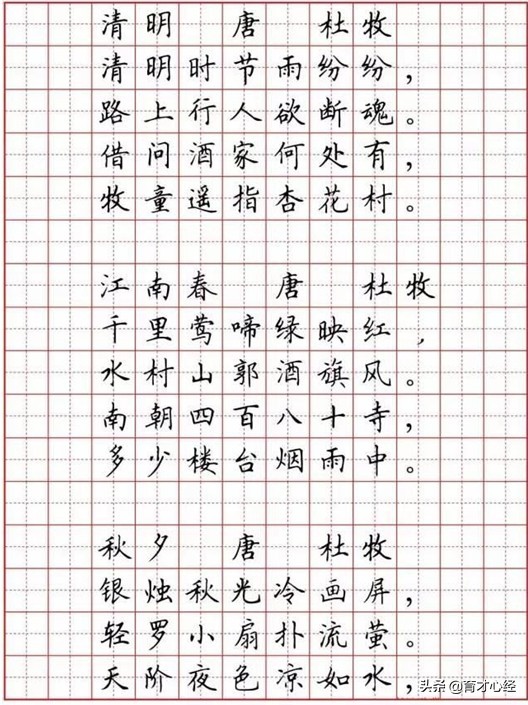 清明 唐 杜牧
清明时节雨纷纷，
路上行人欲断魂。
借问酒家何处有，
牧童遥指杏花村。
江南春 唐 杜牧
千里莺啼绿映红，
水村山郭酒旗风。
南朝四百八十寺，
多少楼台烟雨中。
秋夕 唐 杜牧
银烛秋光冷画屏，
轻罗小扇扑流萤。
天阶夜色凉如水，
头条 @育才心经